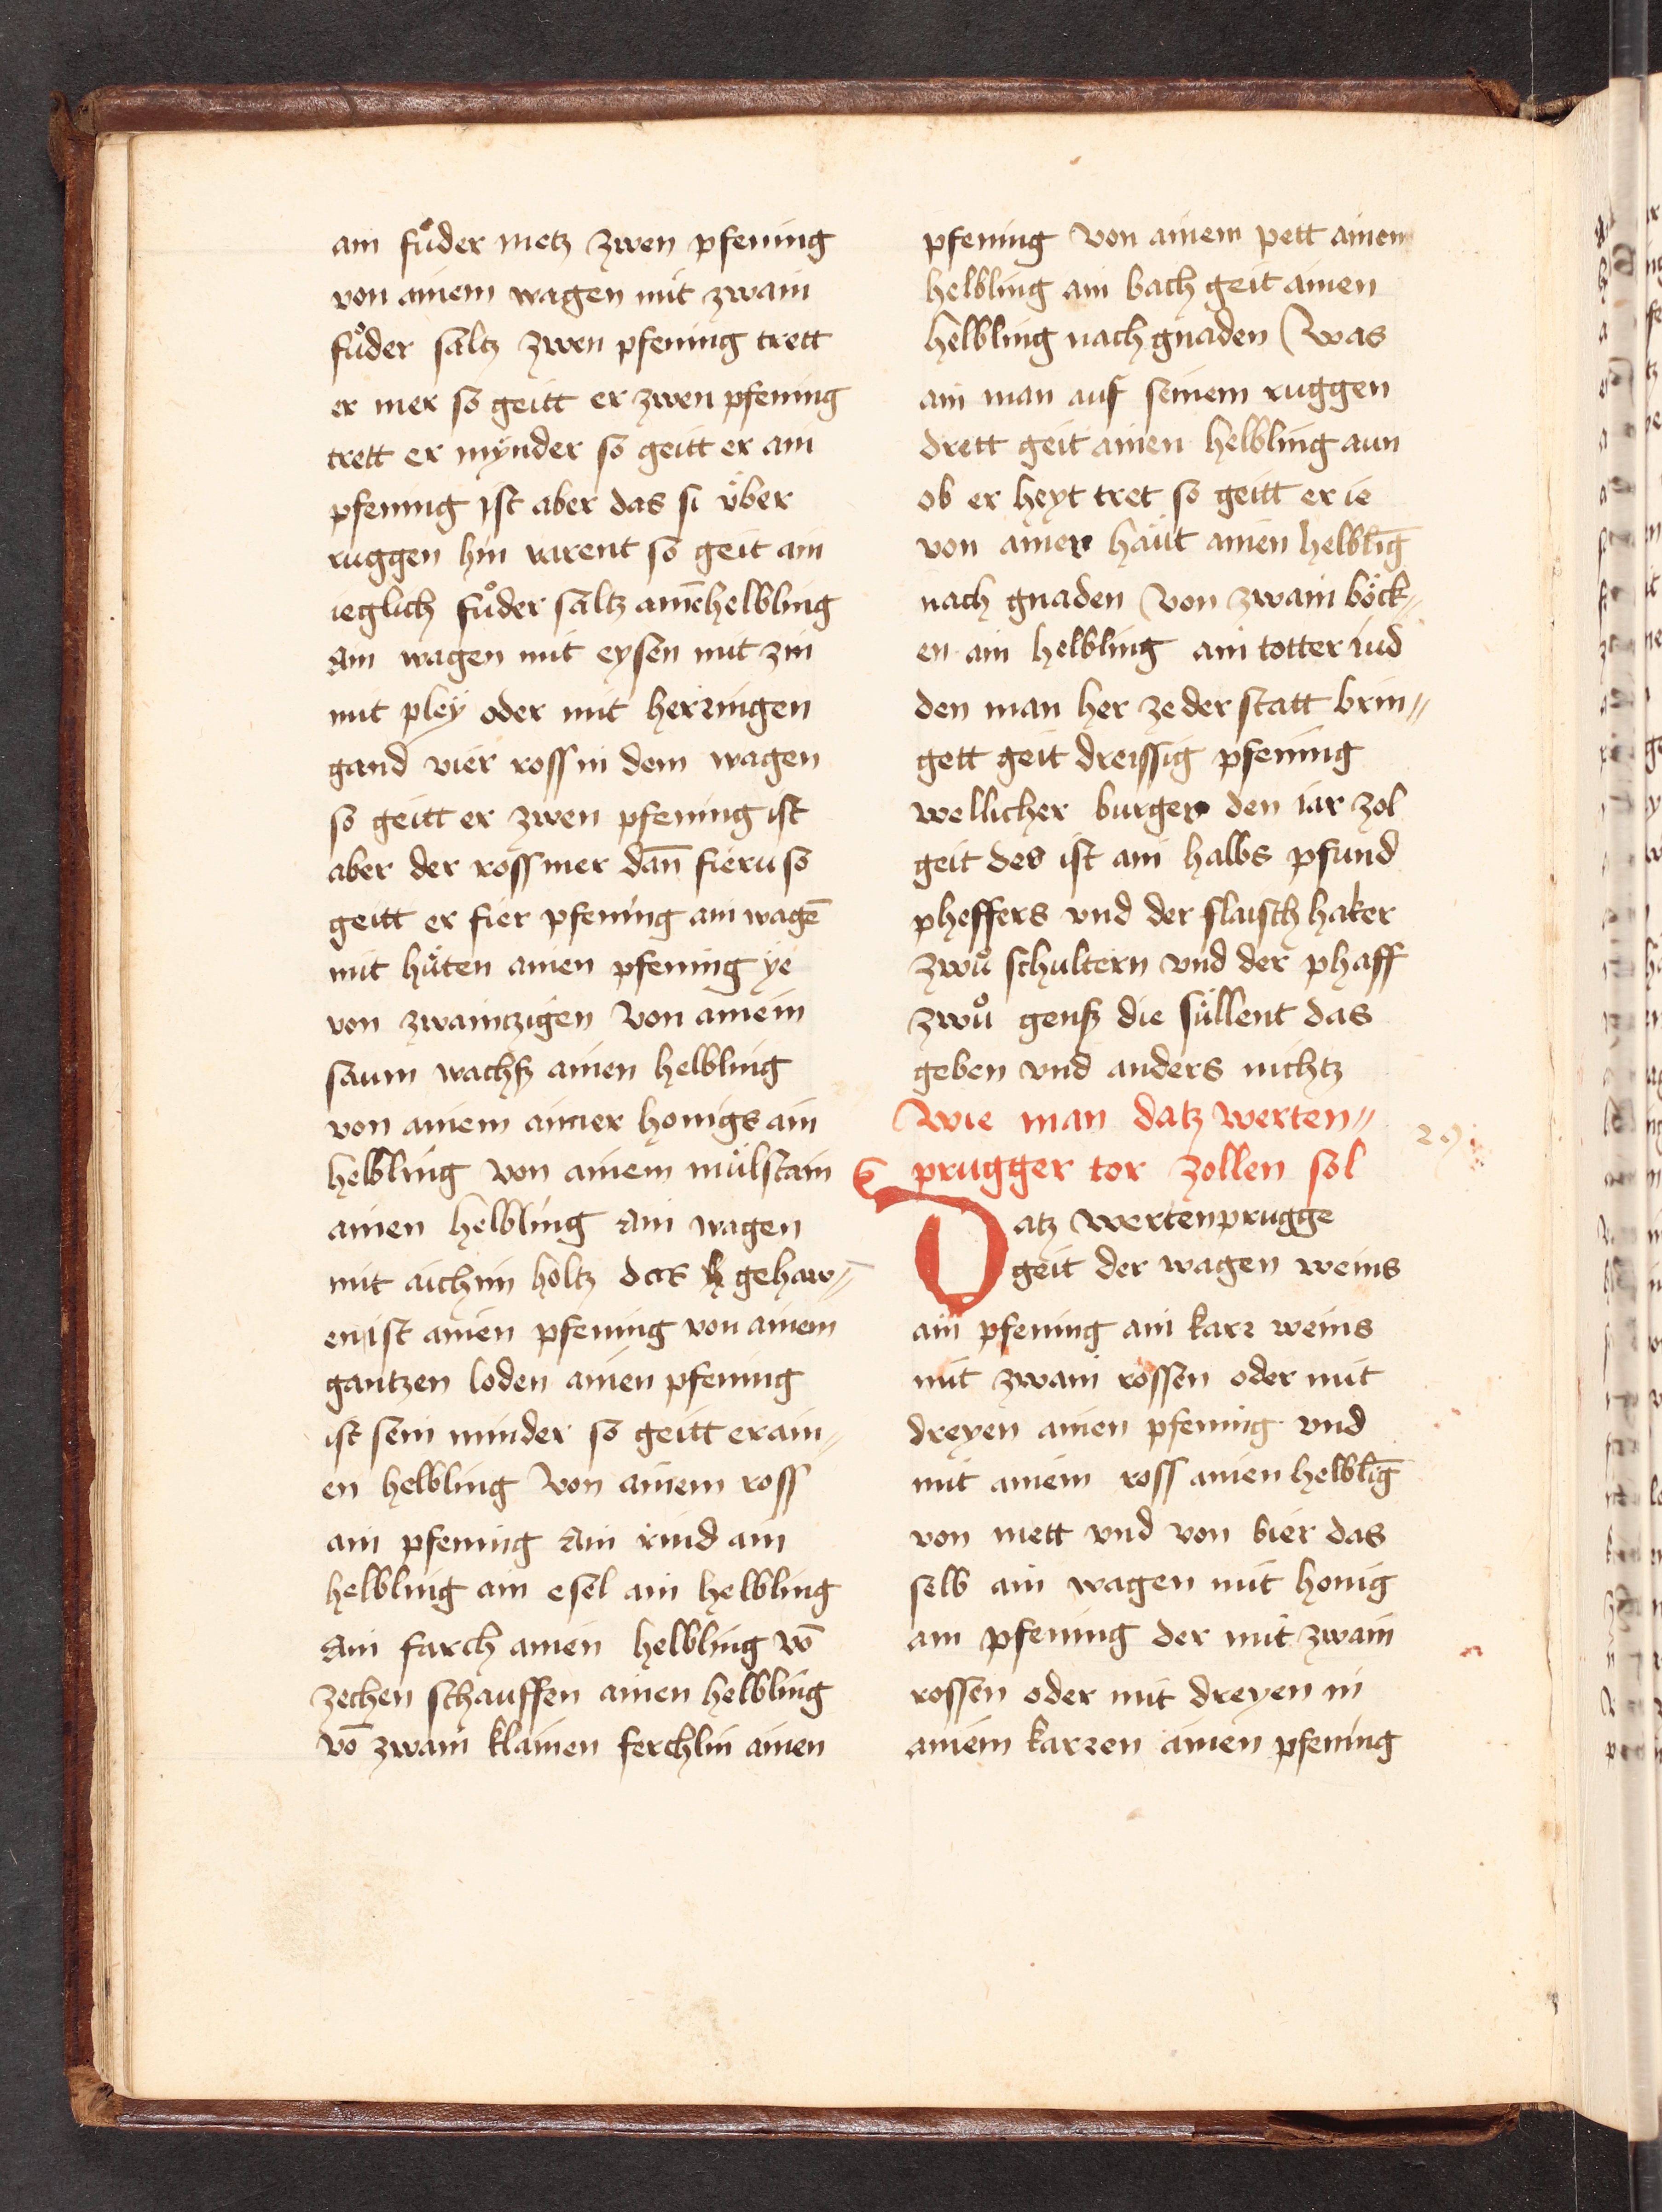 ain fuͦder metz zwen pfening
von ainem wagen mit zwain
fuͦder saltz zwen pfening trett
er mer so geitt er zwen pfening
trett er mÿnder so geitt er ain
pfening ist aber das si über
ruggen hin varent so geit ain
ieglich fuͦder saltz ainēhelbling
Ain wagen mit eysen mit zin
mit pleÿ oder mit herringen
gand vier ross in dem wagen
so geitt er zwen pfening ist
aber der ross mer dan̄ fieru so
geitt er fier pfening ain wagē
mit hüten ainen pfening ye
von zwaintzigen Von ainem
saum wachß ainen helbling
von ainem aimer honigs ain
helbling Von ainem mülstain
ainen helbling Ain wagen
mit aichim holtz das gehaw„
en ist ainen pfening von ainem
gantzen loden ainen pfening
ist sein minder so geitt er ain„
en helbling Von ainem ross
ain pfening Ain rind ain
helbling ain esel ain helbling
Ain farch ainen helbling vō
zechen schauffen ainen helbling
vō zwain klainen ferchlin ainen
pfening Von ainem pett ainem
helbling ain bach geit ainen
helbling nach gnaden Was
ain man auf seinem ruggen
drett geit ainen helbling aun
ob er heyt tret so geitt er ie
von ainer häut ainen helblīg
nach gnaden Von zwain böck„
en ain helbling ain totter iud
den man her ze der statt brin„
gett geit dreissig pfening
wellicher burger den iar zol
geit des ist ain halbs pfund
pheffers vnd der flaisch haker
zwuͦ schultern vnd der phaff
zwuͦ genß die süllent das
geben vnd anders nichtz
Wie man datz werten„
prugger tor zollen sol
Datz wertenprugge
geit der wagen weins
ain pfening ain karr weins
mit zwain rossen oder mit
dreyen ainen pfening vnd
mit ainem ross ainen helblīg
von mett vnd von bier das
selb ain wagen mit honig
ain pfening der mit zwain
rossen oder mit dreyen in
ainem karren ainen pfening